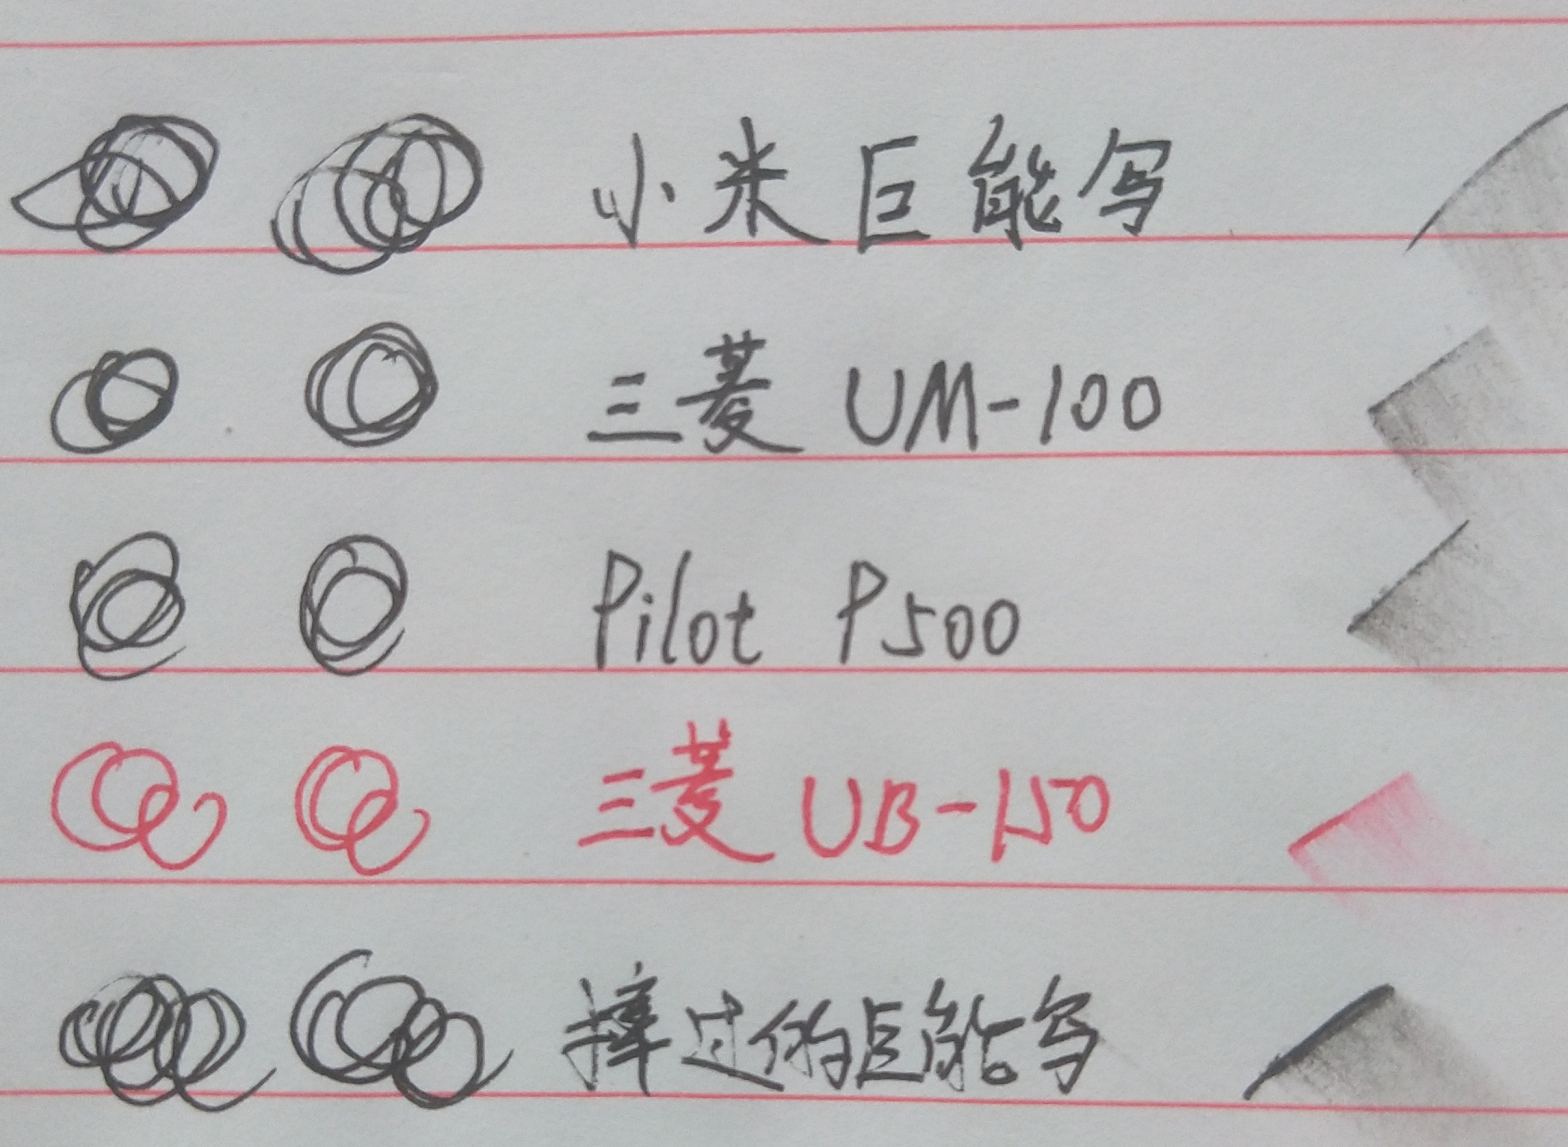 小米巨能写
三菱 UM-100
Pilot P500
三菱 UB-150
摔过的巨能写